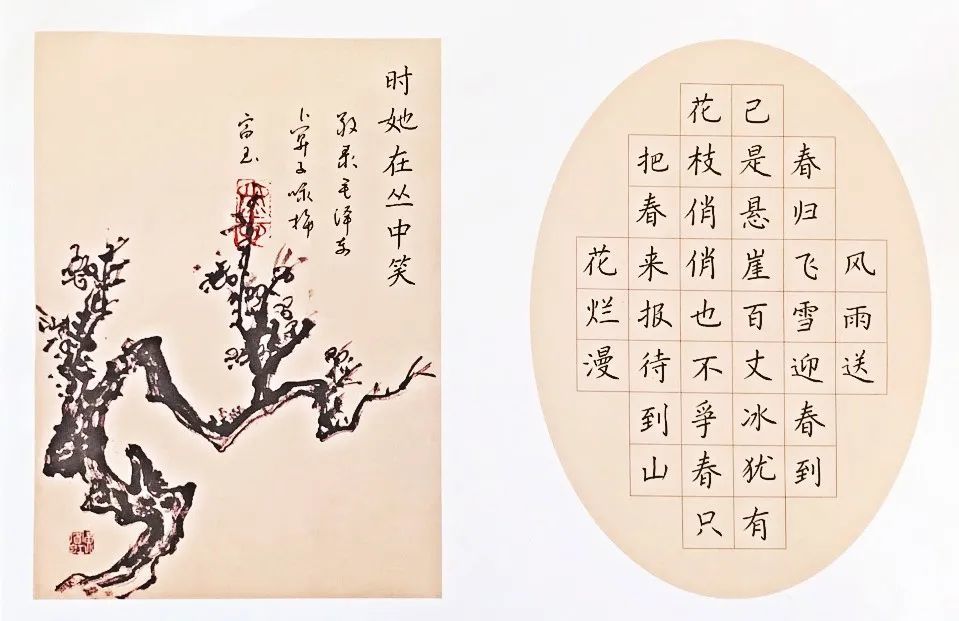 风雨送
春归飞雪迎春到
已是悬崖百丈冰犹有
花枝俏俏也不爭春只
把春来报待到山
花烂漫
时她在丛中笑
敬录毛泽东
卜算子咏梅
富玉